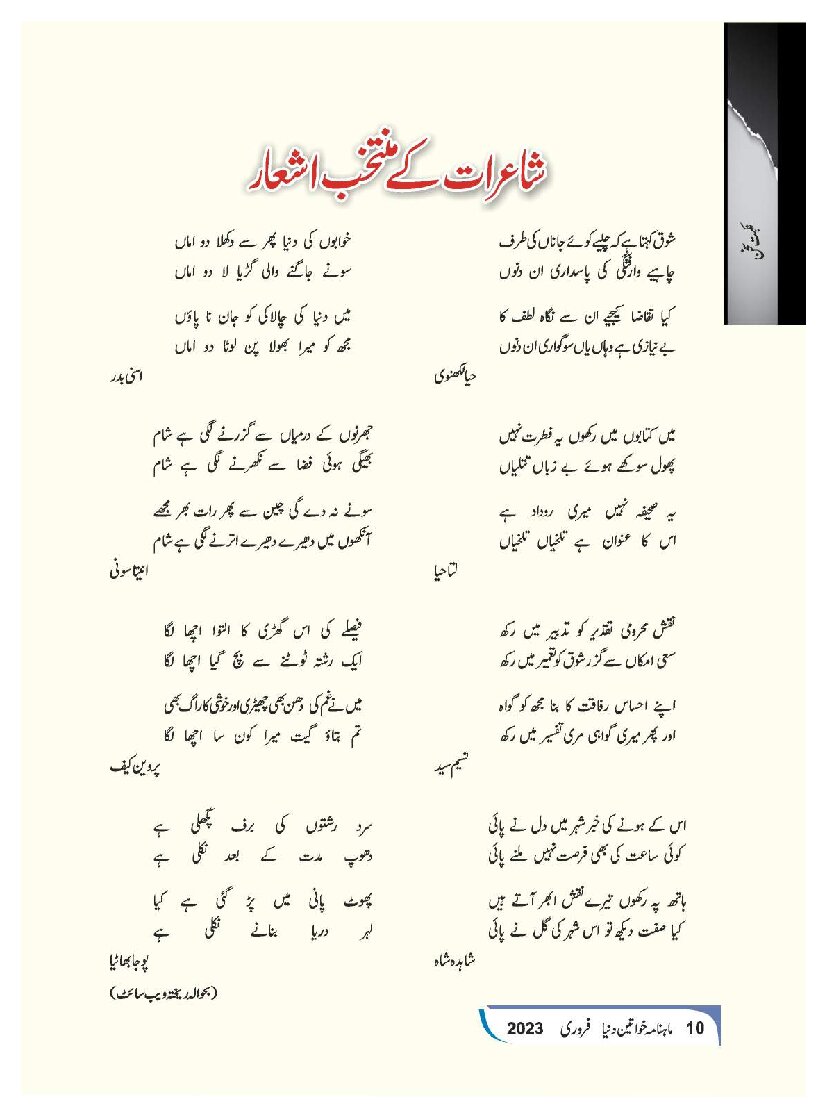 شاعرات کے منتخب اشعار
نگہت سخن
شوق کہتا ہے کہ چلیے کوئے جاناں کی طرف
چاہیے وارفتگی کی پاسداری ان دنوں
کیا تقاضا کیجیے ان سے نگاہ لطف کا
بے نیازی ہے وہاں یاں سوگواری ان دنوں
حیا لکھنوی
میں کتابوں میں رکھوں یہ فطرت نہیں
پھول سوکھے ہوئے بے زباں تتلیاں
یہ صحیفہ نہیں میری روداد ہے
اس کا عنوان ہے تلخیاں تلخیاں
لتا حیا
نقش محرومی تقدیر کو تدبیر میں رکھ
سعی امکاں سے گزر شوق کو تعمیر میں رکھ
اپنے احساس رفاقت کا بنا مجھ کو گواہ
اور پھر میری گواہی مری تفسیر میں رکھ
نسیم سید
اس کے ہونے کی خبر شہر میں دل نے پائی
کوئی ساعت کی بھی فرصت نہیں ملنے پائی
ہاتھ پہ رکھوں تیرے نقش ابھر آتے ہیں
کیا صفت دیکھ تو اس شہر کی گل نے پائی
شاہدہ شاہ
خوابوں کی دنیا پھر سے دکھلا دو اماں
سونے جاگنے والی گڑیا لا دو اماں
میں دنیا کی چالاکی کو جان نا پاؤں
مجھ کو میرا بھولا پن لوٹا دو اماں
اسنی بدر
جھرنوں کے درمیاں سے گزرنے لگی ہے شام
بھیگی ہوئی فضا سے نکھرنے لگی ہے شام
سونے نہ دے گی چین سے پھر رات بھر مجھے
آنکھوں میں دھیرے دھیرے اترنے لگی ہے شام
انیتا سونی
فیصلے کی اس گھڑی کا التوا اچھا لگا
ایک رشتہ ٹوٹنے سے بچ گیا اچھا لگا
میں نے غم کی دھن بھی چھیڑی اور خوشی کا راگ بھی
تم بتاؤ گیت میرا کون سا اچھا لگا
پروین کیف
سرد رشتوں کی برف پگھلی ہے
دھوپ مدت کے بعد نکلی ہے
پھوٹ پانی میں پڑ گئی ہے کیا
لہر دریا بنانے نکلی ہے
پوجا بھاٹیا
(بحوالہ ریختہ ویب سائٹ)
10 ماہنامہ خواتین دنیا فروری 2023